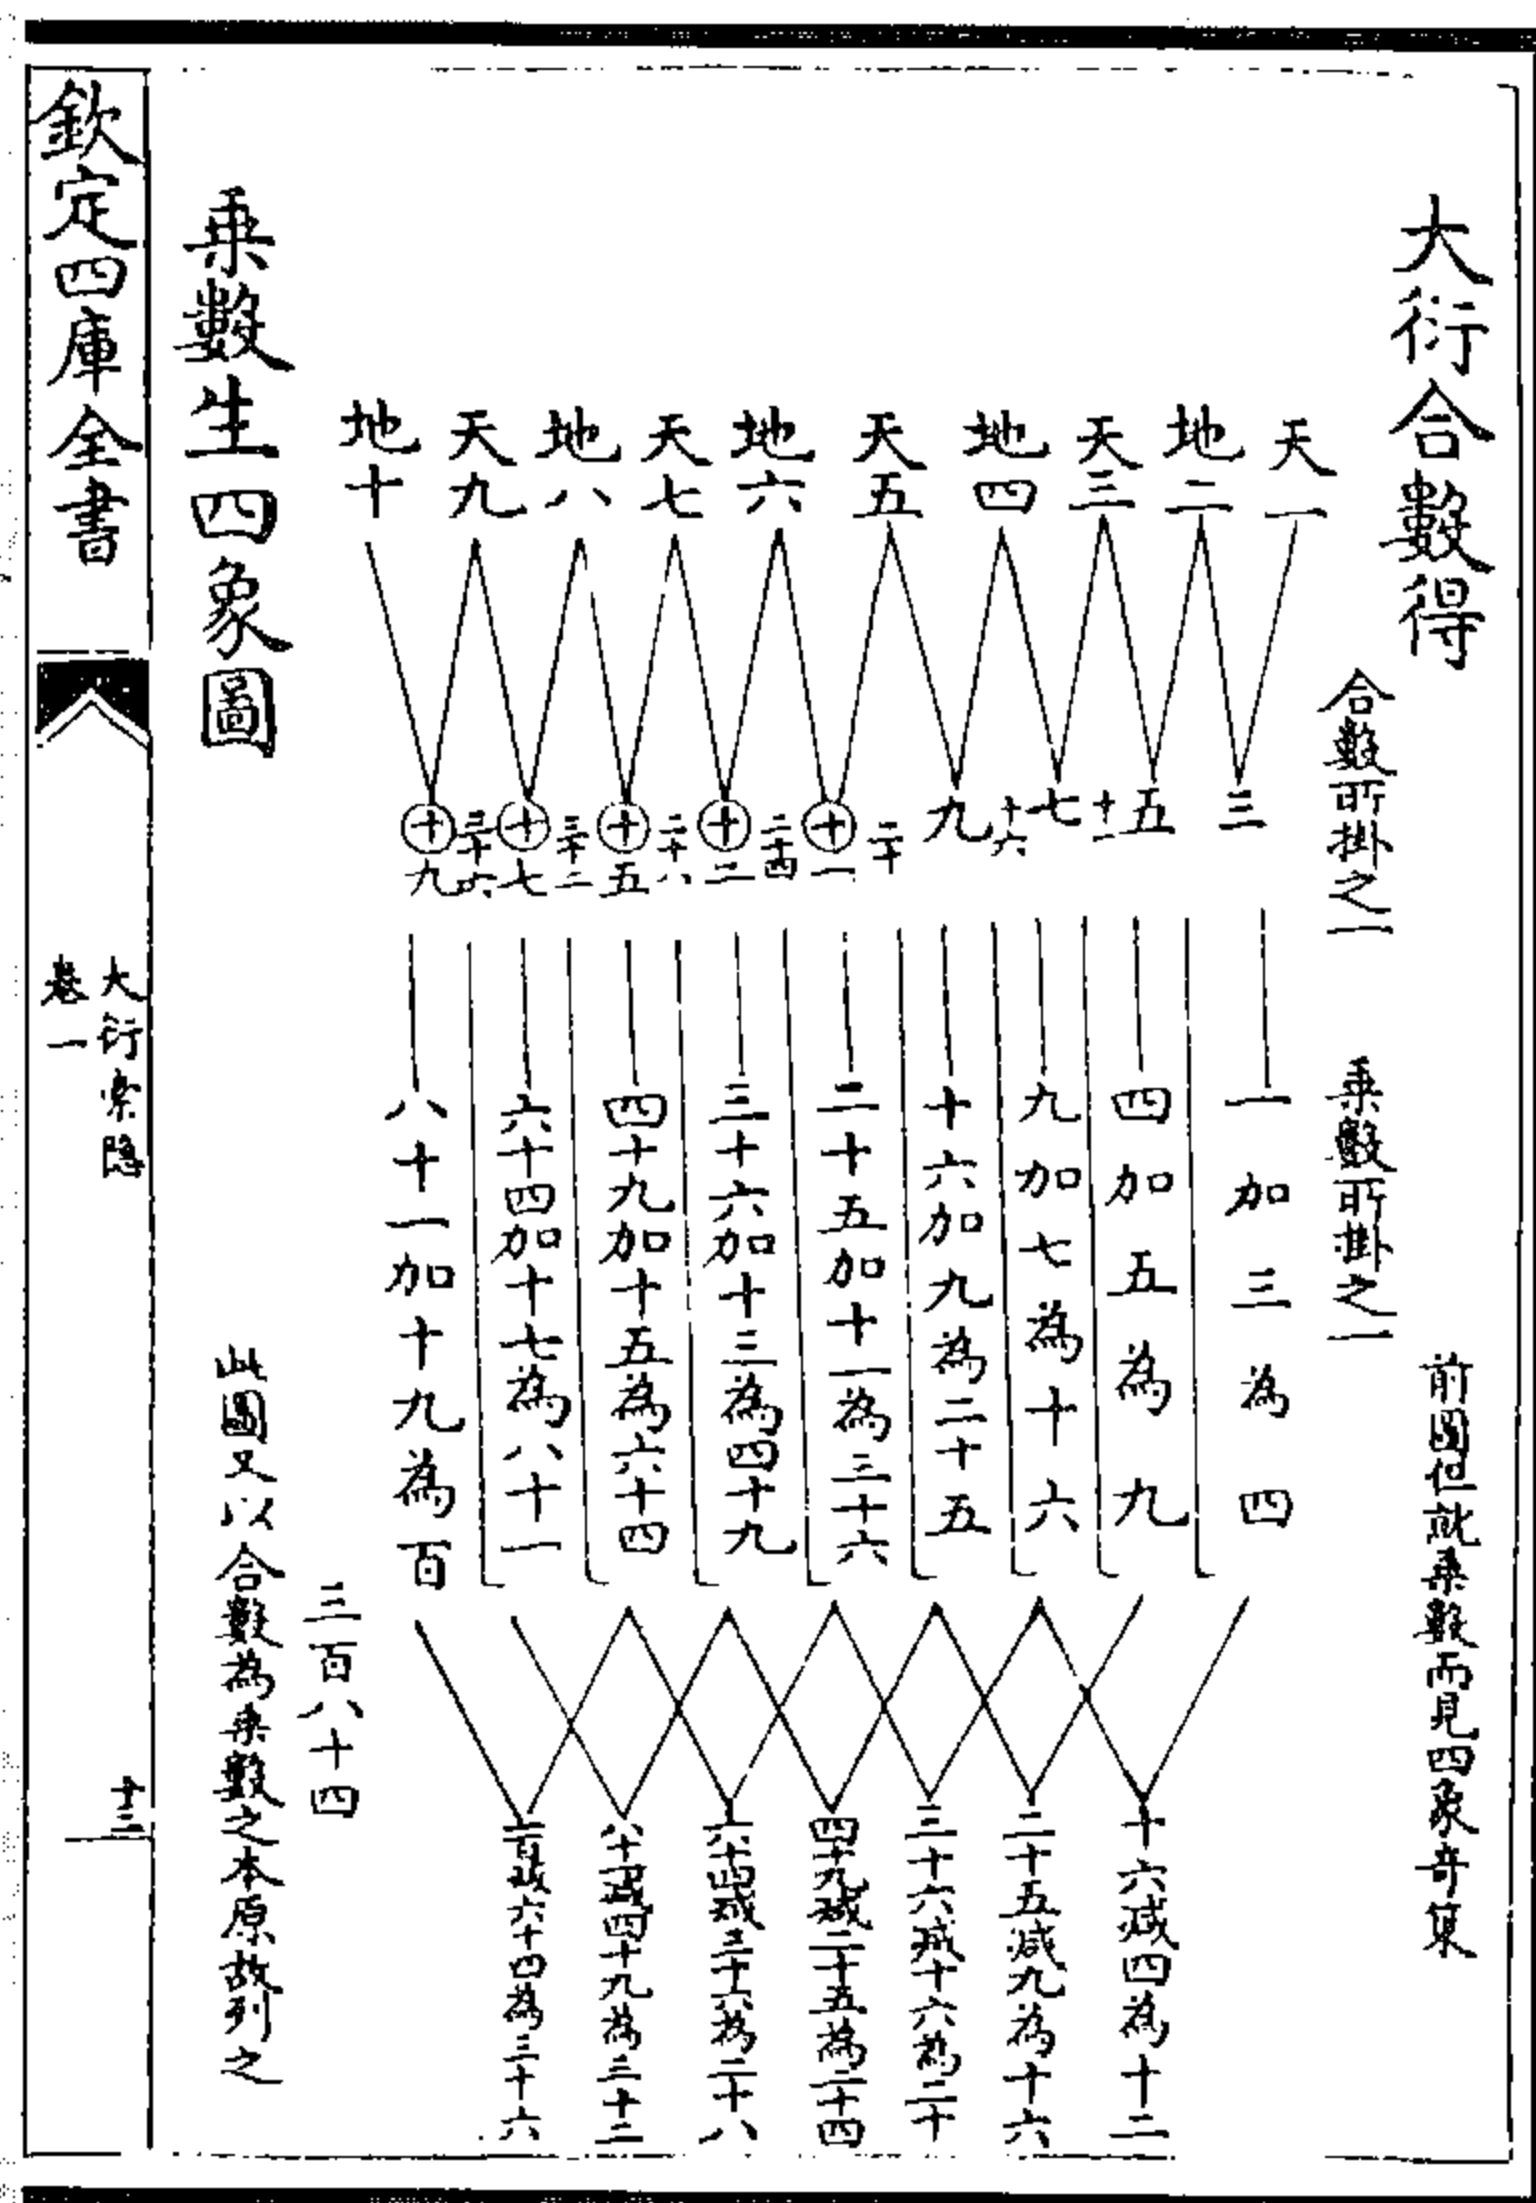 大衍合數得
合數所掛之一
乗數所掛之一
前圖但就乗數而見四象竒策
天一
地二
天三
地四
天五
地六
天七
地八
天九
地十
三
五
十二
七
十六
九
二十
十一
二十四
十三
二十八
十五
三十二
十七
三十六
十九
一加三為四
四加五為九
九加七為十六
十六加九為二十五
二十五加十一為三十六
三十六加十三為四十九
四十九加十五為六十四
六十四加十七為八十一
八十一加十九為百
十六減四為十二
二十五減九為十六
三十六減十六為二十
四十九減二十五為二十四
六十四減三十六為二十八
八十一減四十九為三十二
一百減六十四為三十六
三百八十四
乗數生四象圖
此圖又以合數為乗數之本原故列之
欽定四庫全書
大衍索隱
卷一
十三